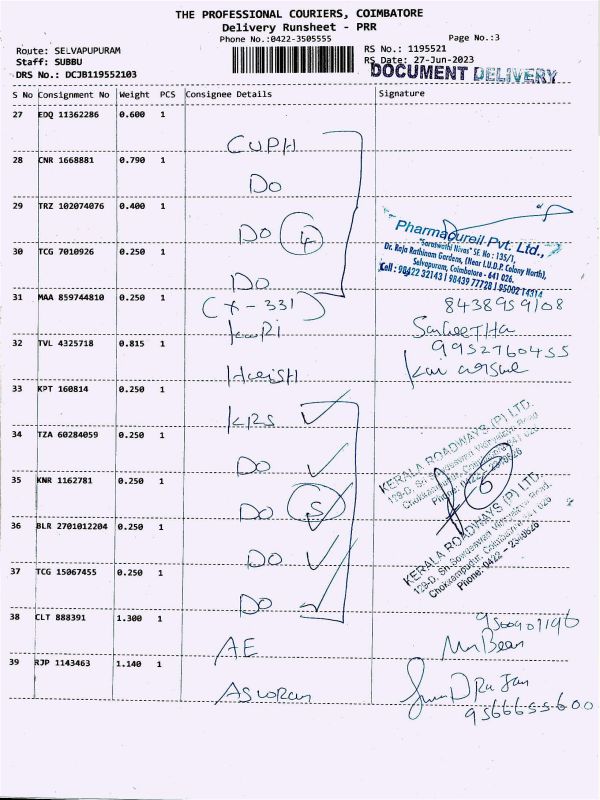 THE PROFESSIONAL COURIERS, COIMBATORE
Delivery Runsheet - PRR
Phone No.:0422-3505555
Page No.:3
Route: SELVAPUPURAM
RS No.: 1195521
Staff: SUBBU
RS Date: 27-Jun-2023
DRS No.: DCJB119552103
DOCUMENT DELIVERY
S No Consignment No Weight PCS Consignee Details Signature
27 EDQ 11362286 0.600 1
CUPH
28 CNR 1668881 0.790 1
Do
29 TRZ 102074076 0.400 1
Do 4
Pharmacureil Pvt. Ltd.,
"Saraswathi Nivas" SF. No : 135/1,
Dr. Raja Rathinam Gardens, (Near I.U.D.P. Colony North),
Selvapuram, Coimbatore - 641 026.
Cell : 98422 32143 | 98439 77728 | 95002 14314
30 TCG 7010926 0.250 1
Do
31 MAA 859744810 0.250 1
(X-331)
8438959108
32 TVL 4325718 0.815 1
SanGeeTHa
9952760455
HaeisH
33 KPT 160814 0.250 1
KRS
34 TZA 60284059 0.250 1
Do
KERALA ROADWAYS (P) LTD.
35 KNR 1162781 0.250 1
Do 5
6
36 BLR 2701012204 0.250 1
Do
KERALA ROADWAYS (P) LTD.
Phone: 0422 - 2348626
37 TCG 15067455 0.250 1
Do
38 CLT 888391 1.300 1
AE
Mr Bean
39 RJP 1143463 1.140 1
9566655600